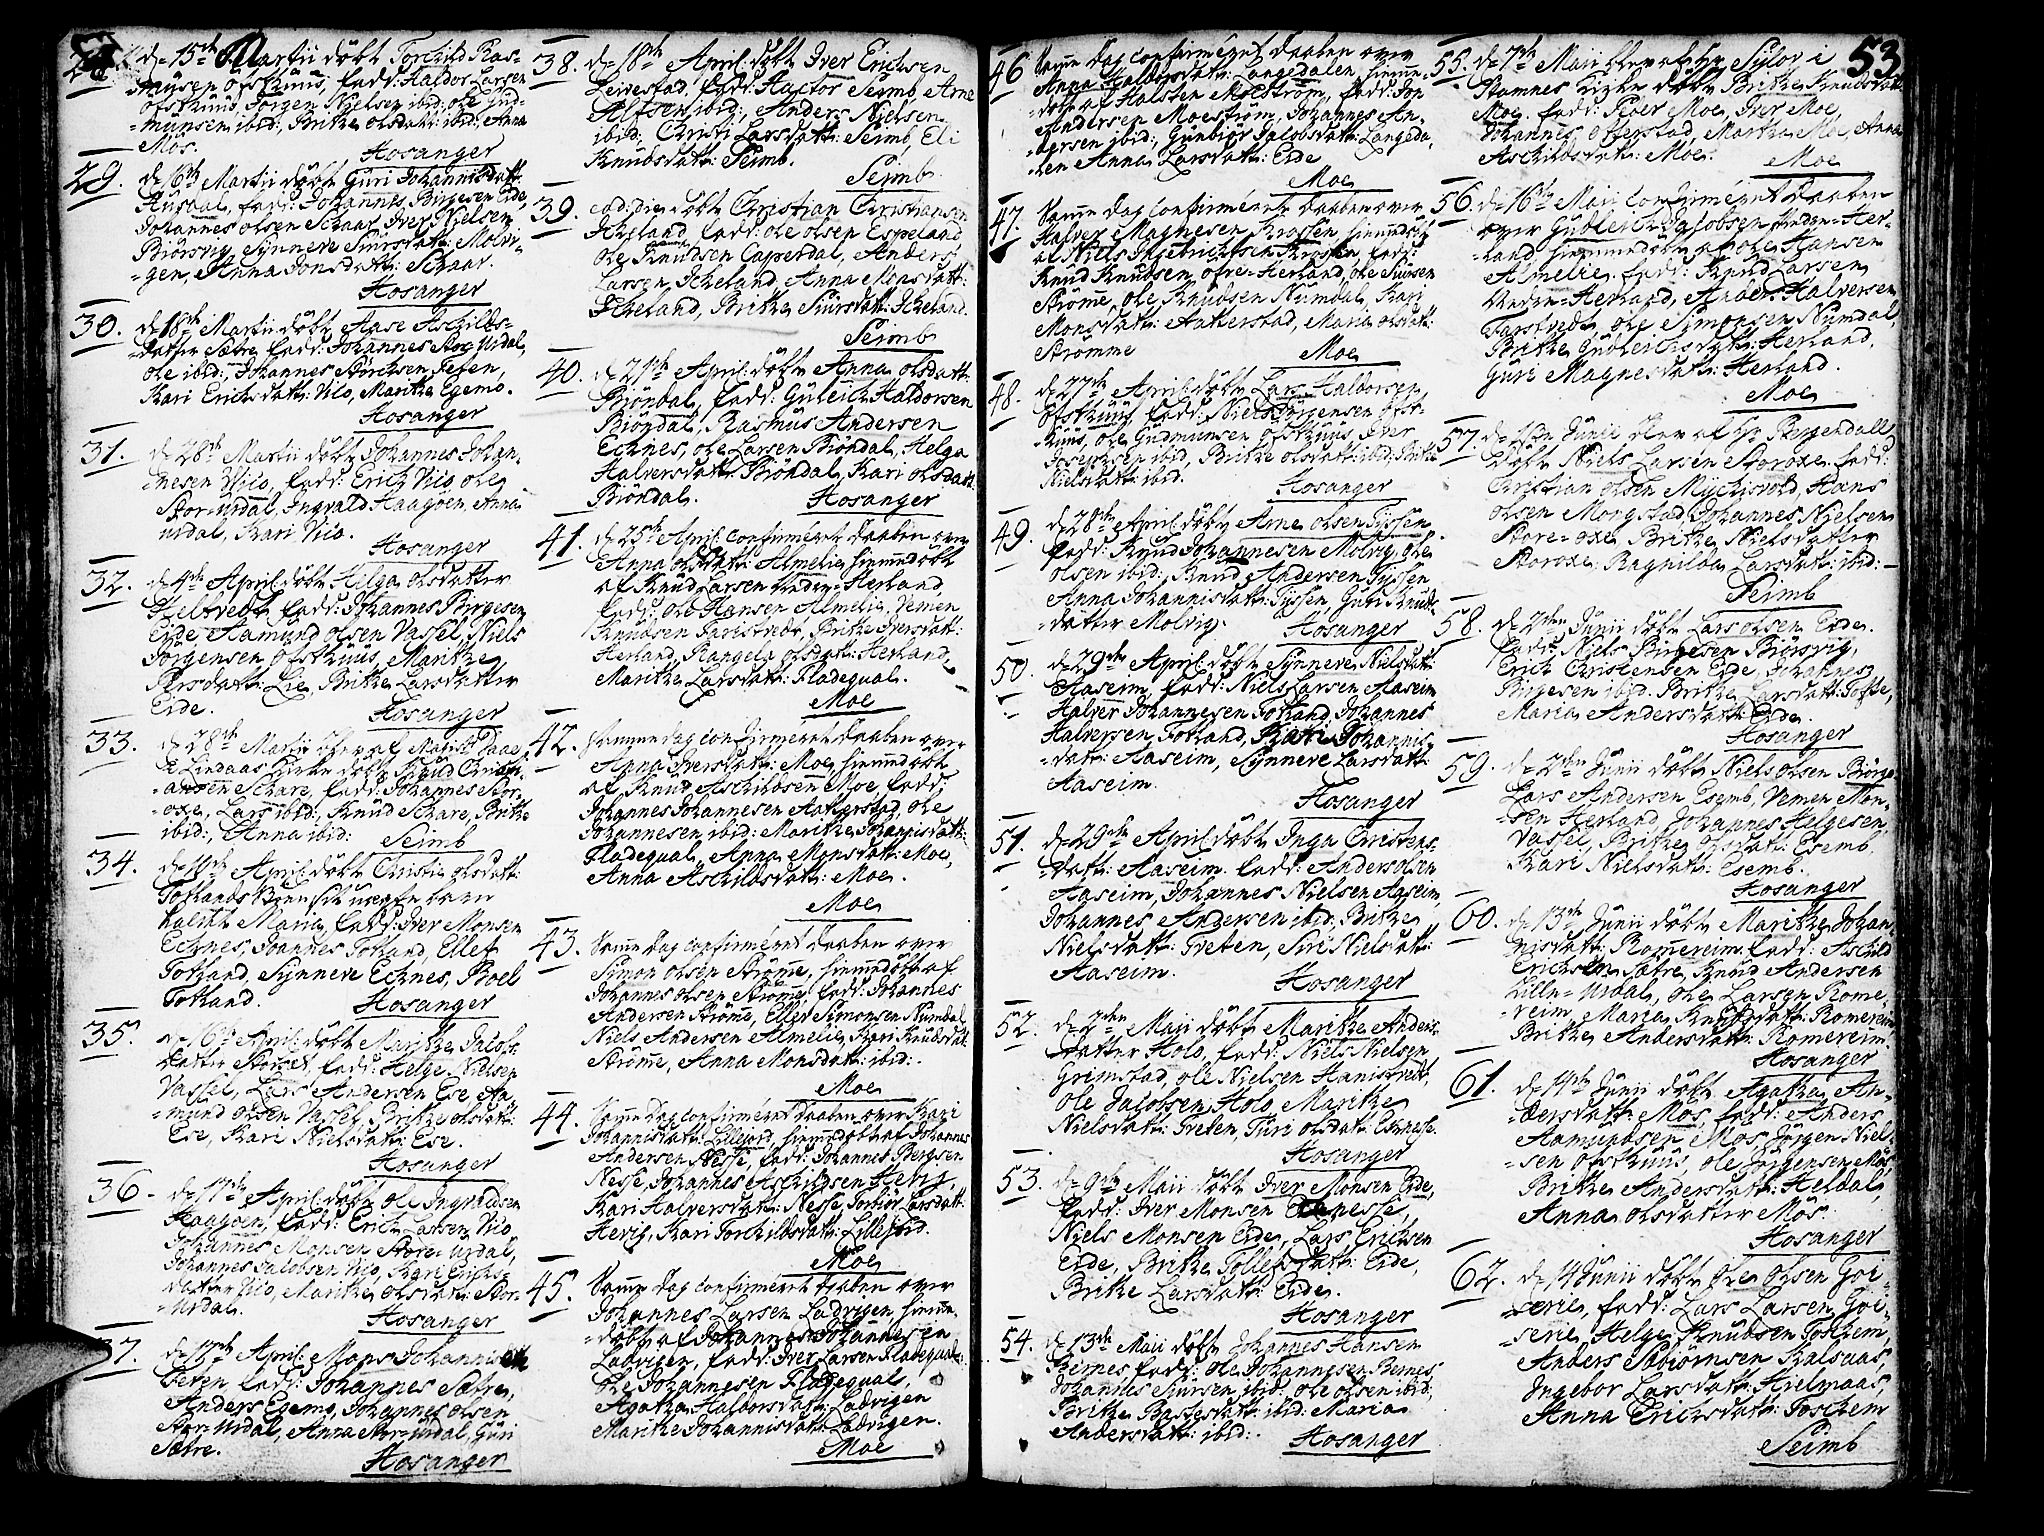 28. d. 15de Martii döbt Torchild Ras-
musen ofsthuus, fadd: Haldor Larsen
ofsthuus, Jörgen Nielsen ibid: ole Gud-
=munsen ibid; Britha olsdatt: ibid: Anna
Mos. Hosanger
29. d. 16de Martii döbt Guri Johannisdatt:
fadd: Johannis Birgesen Eide,
Johannes olsen Schaar, Iver Nielsen
Biörsvig, Synneve Siursdatt: Molvi-
=gen, Anna Jonsdatt: Schaar.
Hosanger
30. d. 18de Martii döbt Aase Aschilds-
datter Sætre fadd: Johannes Stor Urdal,
ole ibid:, Johannes
Kari Erichsdatt: Vio, Maritha Egemo.
Hosanger
31. d. 28de Martii döbt Johannes Johan-
nesen Vio, fadd: Erich Vio ole
Stor=urdal, Ingvald Haagöen, Anna
urdal, Kari Vio.
Hosanger
32. d. 4de April döbt Helga olsdatter
Heltvedt fadd: Johannes Birgesen
Eide Aamund olsen Vassel, Niels
Jörgensen ofsthuus, Maritha
Persdatt: Lie, Britha Larsdatter
Eide. Hosanger
33. d. 28de Martii blev af
i Lindaas Kirke döbt Knud Christi-
=ansen Schare, fadd: Johannes Stor-
=oxe, Lars ibid:, Knud Schare, Britha
ibid:, Anna ibid: Seimb
34. d. 10de April döbt Christi olsdatt:
Totlands
kaldet Maria, fadd: Iver Monsen
Echnes, Joannes Totland, Ellef
Totland, Synneve Echnes, Boel
Totland. Hosanger
35. d. 16de April: döbt Maritha Jacobs-
datter fadd: Helge Nielsen
Vassel, Lars Andersen Ese, Aa-
=mund olsen Vassel, Britha olsdatt:
Ese, Kari Nielsdatt: Ese.
Hosanger
36. d. 17de April döbt ole Ingvaldsen
Haagöen, fadd: Erich Larsen Vio,
Johannes Monsen Store urdal,
Johannes Jacobsen Vio, Kari Erichs-
datter Vio, Maritha olsdatt: Stor-
=urdal. Hosanger
37. d. 17de April: Mons Johannis
fadd: Johannes Sætre,
Anders Egemo, Johannes olsen
Stor=Urdal, Anna Stor=urdal, Guri
Sætre. Hosanger
38. d. 18de April: döbt Iver Erichsen
Leirestad, fadd: Hactor Seimb, Arne
Alfsen ibid:, Anders Nielsen
ibid: Christi Larsdatt: Seimb, Eli
Knudsdatt: Seimb.
Seimb
39. eod: die döbt Christian Christiansen
Icheland, fadd: ole olsen Espeland
ole Knudsen Casperdal, Anders
Larsen Icheland, Anna Monsdatt:
Icheland, Britha Siursdatt: Icheland.
Seimb
40. d. 21de April: döbt Anna olsdatt:
Biöndal, fadd: Guleich Haldorsen
Biöndal, Rasmus Andersen
Echnes, ole Larsen Biöndal, Helga
Halversdatt: Biöndal, Kari olsdatt:
Biöndal. Hosanger
41. d. 25de April: confirmeret daaben over
Anna olsdatt: Almelie hiemmedöbt
af Knud Larsen Neden=Herland,
fadd: ole Hansen Almelie, Vemen
Knudsen Farestvedt, Britha Iversdatt:
Herland, Rangela olsdatt: Herland,
Maritha Larsdatt: Fladequal.
Moe
42. Samme dag confirmeret daaben over
Anna Iversdatt: Moe, hiemmedöbt
af Knud Aschildsen Moe, fadd:
Johannes Johannesen Aatterstad, ole
Johannesen ibid: Maritha Johannisdatt:
Fladequal, Anna Monsdatt: Moe,
Anna Aschildsdatt: Moe.
Moe
43. Samme dag confirmeret daaben over
Simon olsen Strömme, hiemmedöbt af
Johannes olsen Strömme, fadd: Johannes
Andersen Strömme, Ellef Simonsen Numdal
Niels Andersen Almelie, Kari Knudsdatt:
Strömme, Anna Monsdatt: ibid:
Moe
44. Samme dag confirmeret daaben over Kari
Johannisdatt: Lillejord, hiemmedöbt af Johannes
Andersen Nesse, fadd: Johannes Bergesen
Nesse, Johannes Aschildsen Hevig,
Kari Halversdatt: Nesse, Torbiör Larsdatt:
Hevig, Kari Torchildsdatt: Lillejord.
Moe
45. Samme dag confirmeret daaben over
Johannes Larsen Ladvigen, hiemme-
=döbt af Johannes Johannesen
Ladvigen, fadd: Iver Larsen Fladequal
Ole Johannesen Fladequal,
Agatha Haldorsdatt: Ladvigen
Maritha Johannisdatt: Ladvigen.
Moe
46. Samme dag confirmeret daaben over
Anna Haldorsdatt: Langedalen, hiemme-
döbt af Halsten Moeström, fadd: Jon
Andersen Moeström, Johannes An-
dersen ibid:, Gunbiör Jacobsdatt: Langeda-
len Anna Larsdatt: Eide
Moe
47. Samme dag confirmerte daaben over
Halver Magnesen Krossen hiemmedöbt
af Niels Ingebrichtsen Krossen, fadd:
Knud Knudsen, ofre=Herland, ole Siursen
Strömme, ole Knudsen Numdal, Kari
Monsdatt: Aatterstad, Maria olsdatt:
Strömme Moe
48. d. 27de April: döbt Lars Haldorsen
ofsthuus fadd: Niels Jörgensen ofst-
huus, ole Gudmunsen ofsthuus, Iver
Josephsen ibid, Britha olsdatt: ibid, Britha
Nielsdatt: ibid.
Hosanger
49. d. 28de April döbt Arne olsen Tyssen
fadd: Knud Johannesen Molvig, ole
olsen ibid:, Knud Andersen Tyssen
Anna Johannisdatt: Tyssen, Guri Knuds-
=datter Molvig. Hosanger
50. d. 29de April: döbt Synneve Nielsdatt:
Aaseim, fadd: Niels Larsen Aaseim
Halver Johannesen Totland, Johannes
Halversen Totland, Kari Johannis-
=datt: Aaseim, Synneve Larsdatt:
Aaseim.
Hosanger
51. d. 29de April: döbt Inga Christens-
=datt: Aaseim. fadd: Anders olsen
Aaseim, Johannes Nielsen Aaseim,
Johannes Andersen ibid:, Britha
Nielsdatt: Treten, Siri Nielsdatt:
Aaseim.
Hosanger
52. d. 2den Maii döbt Maritha Anders-
datter Holo, fadd: Niels Nielsen
Grimstad, ole Nielsen Hanistvedt,
Ole Jacobsen Holo, Maritha
Nielsdatt: Treten, Turi olsdatt:
Hosanger
53. d. 9de Maii döbt Iver Monsen Eide,
fadd: Iver Monsen
Niels Monsen Eide, Lars Erichsen
Eide, Britha Tollefsdatt: Eide,
Britha Larsdatt: Eide.
Hosanger
54. d. 13de Maii döbt Johannes Hansen
Bernes, fadd: ole Johannesen Bernes,
Johannes Siursen ibid: ole olsen ibid:
Britha Bastesdatt: ibid: Maria
Andersdatt: ibid: Hosanger
53
55. d. 7de Maii blev af Hr Sylov i
Stamnes Kirke döbt Britha Knudsdatt:
Moe. fadd: Peder Moe, Iver Moe,
Johannes offerstad, Martha Moe, Anna
Aschildsdatt: Moe.
Moe
56. d. 16de Maii confirmeret daaben
over Gudleich Jacobsen Neden=Her-
land, hiemmedöbt af ole Hansen
Almelie. fadd: Knud Larsen
Neden=Herland, Anders Halversen
Farstvedt, ole Simonsen Numdal,
Britha Gudleichsdatt: Herland,
Guri Magnesdatt: Herland.
Moe
57. d. 1ste Junii blev af Hr Bergendall
döbt Niels Larsen Storoxe. fadd:
Christian olsen Myckisvold, Hans
olsen Mongstad, Johannes Nielsen
Store=oxe, Britha Nielsdatter
Storoxe, Ragnilda Larsdatt: ibid:
Seimb
58. d. 2den Junii döbt Lars olsen Eide.
fadd: Niels Birgesen Biörsvig,
Erich Christensen Eide, Johannes
Birgesen ibid: Britha Larsdatt: Tofte,
Maria Andersdatt: Eide.
Hosanger
59. d. 2den Junii döbt Niels olsen Biörge
Lars Andersen Esemb, Vemen Mon-
sen Herland, Johannes Helgesen
Vassel, Britha olsdatt: Esemb
Kari Nielsdatt: Esemb.
Hosanger
60. d. 13de Junii döbt Maritha Johan-
nisdatt: Romereim, fadd: Aschild
Erichsen Sætre, Knud Andersen
Lille=Urdal, ole Larsen Rome-
=reim, Maria Knudsdatt: Romereim
Britha Andersdatt: Romereim.
Hosanger
61. d. 14de Junii döbt Agatha An-
=dersdatt: Mos, fadd: Anders
Aamundsen Mos, Jörgen Niel-
=sen ofsthuus, ole Jörgensen Mos
Britha Andersdatt: Heldal,
Anna olsdatter Mos.
Hosanger
62. d. 14 Junii döbt Ole Olsen Goi-
=serie, fadd: Lars Larsen Goi-
=serie, Helge Knudsen Toschem,
Anders Sæbiörnsen Kalsaas,
Ingebor Larsdatt: Hielmaas,
Anna Erichsdatt: Toschem
Seimb